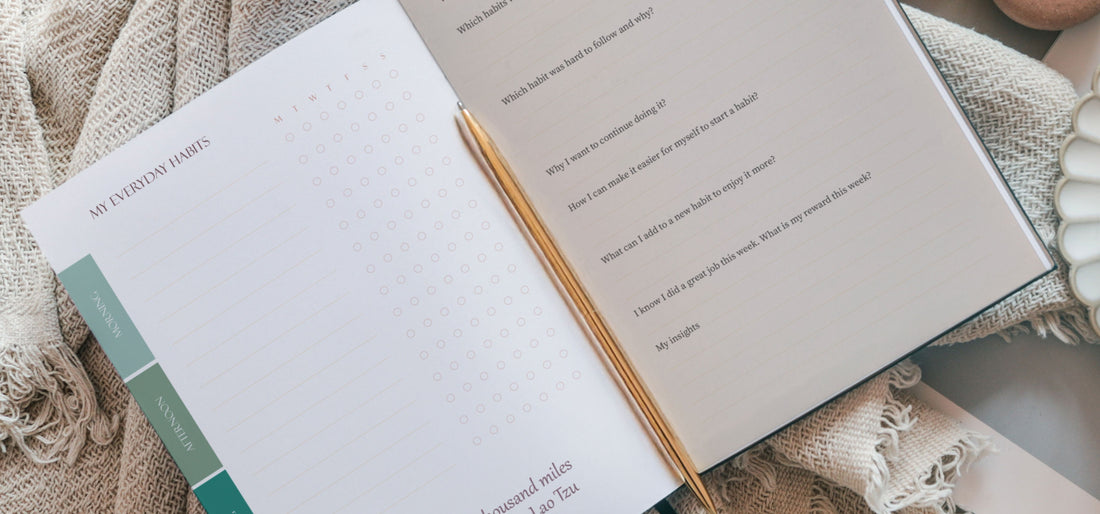 MY EVERYDAY HABITS
M T W T F S S
MORNING
AFTERNOON
housand miles
Lao Tzu
Which habits
Which habit was hard to follow and why?
Why I want to continue doing it?
How I can make it easier for myself to start a habit?
What can I add to a new habit to enjoy it more?
I know I did a great job this week. What is my reward this week?
My insights